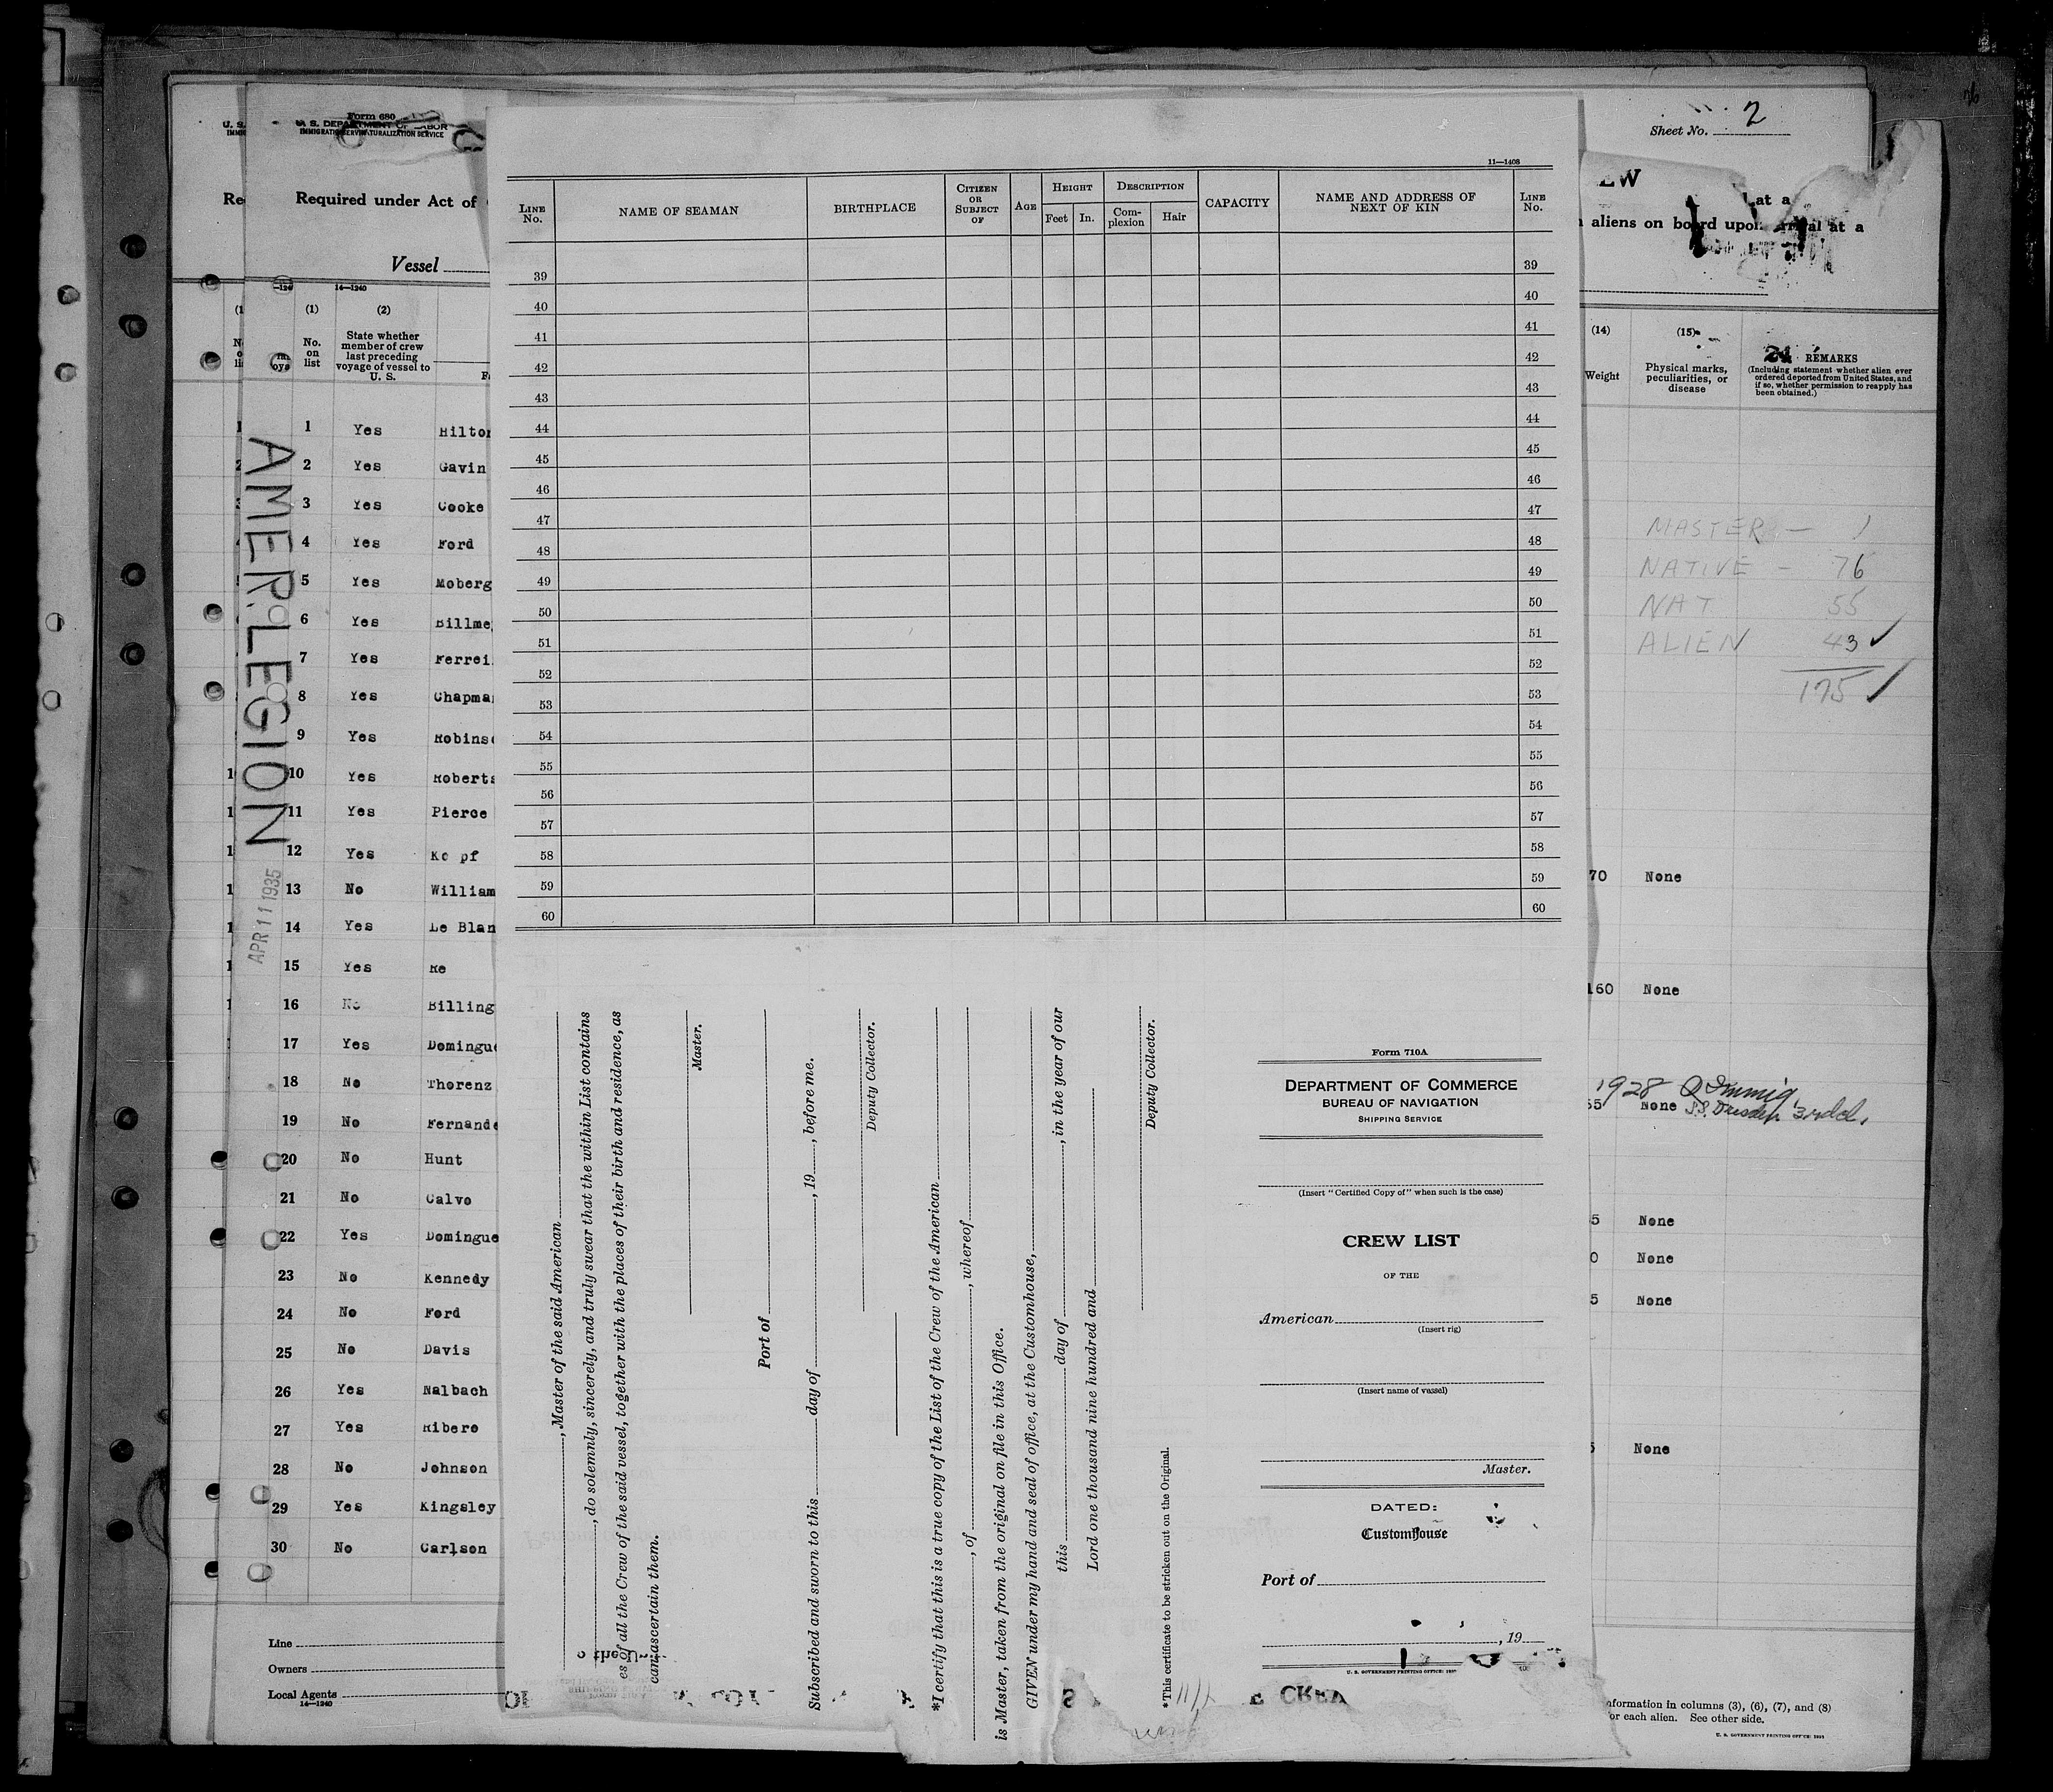 Form 680
U. S. DEPARTMENT OF LABOR
Sheet No. 2
Required under Act of
aliens on board upon arrival at a
at a
Vessel
14—1240
(1)
No. on list
(2)
State whether member of crew last preceding voyage of vessel to U. S.
(14)
Weight
(15)
Physical marks, peculiarities, or disease
REMARKS
(Including statement whether alien ever ordered deported from United States, and if so, whether permission to reapply has been obtained.)
AMER. LEGION
APR 11 1935
1 Yes Hilton
2 Yes Gavin
3 Yes Cooke
4 Yes Ford
5 Yes Moberg
6 Yes Billme
7 Yes Ferrei
8 Yes Chapma
9 Yes Robins
10 Yes Roberts
11 Yes Pierce
12 Yes Ko pf
13 No William
14 Yes Le Blan
15 Yes Re
16 No Billing
17 Yes Domingu
18 No Thorenz
19 No Fernande
20 No Hunt
21 No Calvo
22 Yes Domingue
23 No Kennedy
24 No Ford
25 No Davis
26 Yes Nalbach
27 Yes Ribero
28 No Johnson
29 Yes Kingsley
30 No Carlson
Line
Owners
Local Agents
14—1240
11—1408
LINE No.
NAME OF SEAMAN
BIRTHPLACE
CITIZEN OR SUBJECT OF
AGE
HEIGHT
Feet
In.
DESCRIPTION
Complexion
Hair
CAPACITY
NAME AND ADDRESS OF NEXT OF KIN
LINE No.
39 39
40 40
41 41
42 42
43 43
44 44
45 45
46 46
47 47
48 48
49 49
50 50
51 51
52 52
53 53
54 54
55 55
56 56
57 57
58 58
59 59
60 60
MASTER — 1
NATIVE — 76
NAT 55
ALIEN 43 ✓
175 ✓
70 None
160 None
1928
None
5 None
0 None
5 None
None
, Master of the said American
, do solemnly, sincerely, and truly swear that the within List contains
es of all the Crew of the said vessel, together with the places of their birth and residence, as
can ascertain them.
Master.
Port of
Subscribed and sworn to this day of , 19 , before me.
Deputy Collector.
*I certify that this is a true copy of the List of the Crew of the American
, of , whereof
is Master, taken from the original on file in this Office.
GIVEN under my hand and seal of office, at the Customhouse,
this day of , in the year of our
Lord one thousand nine hundred and
Deputy Collector.
*This certificate to be stricken out on the Original.
Form 710A
DEPARTMENT OF COMMERCE
BUREAU OF NAVIGATION
SHIPPING SERVICE
(Insert "Certified Copy of" when such is the case)
CREW LIST
OF THE
American
(Insert rig)
(Insert name of vessel)
Master.
DATED:
Customhouse
Port of
, 19
nformation in columns (3), (6), (7), and (8)
or each alien. See other side.